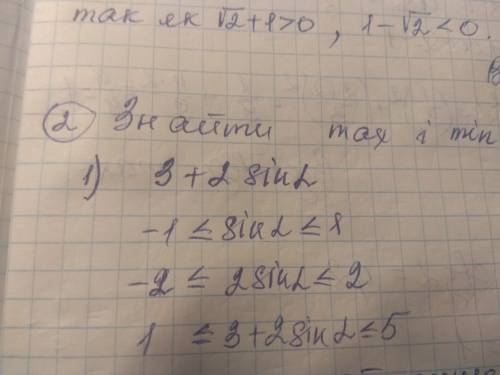 так як √2+1>0, 1-√2<0.
② Знайти max і min
1) 3+2 sinα
-1 ≤ sinα ≤ 1
-2 ≤ 2sinα ≤ 2
1 ≤ 3+2sinα ≤ 5